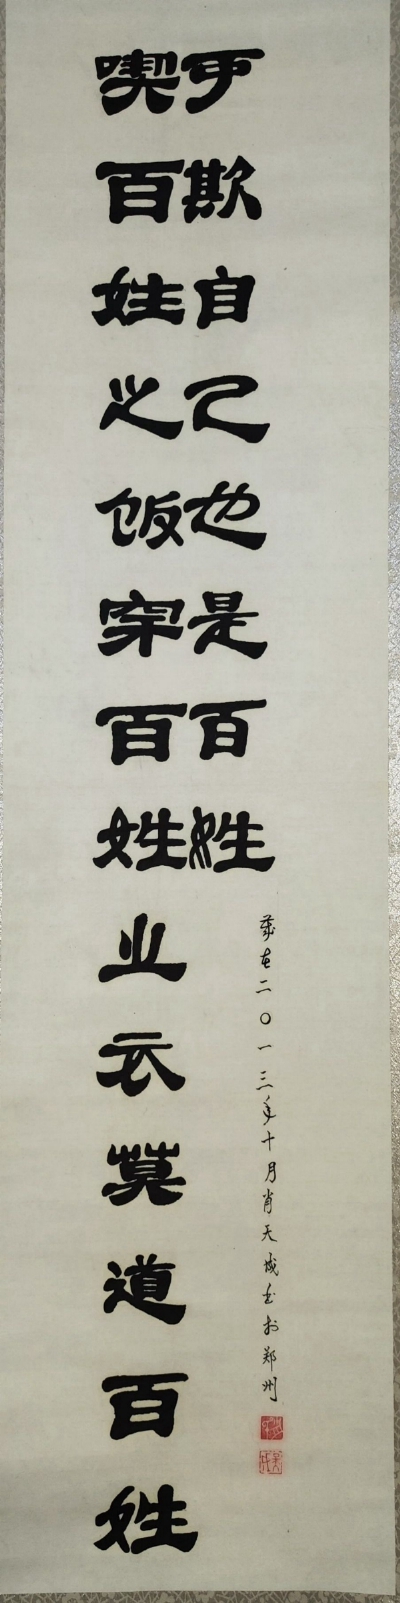 喫百姓之饭穿百姓之衣莫道百姓
可欺自己也是百姓
歲在二〇一三年十月肖天城书於郑州